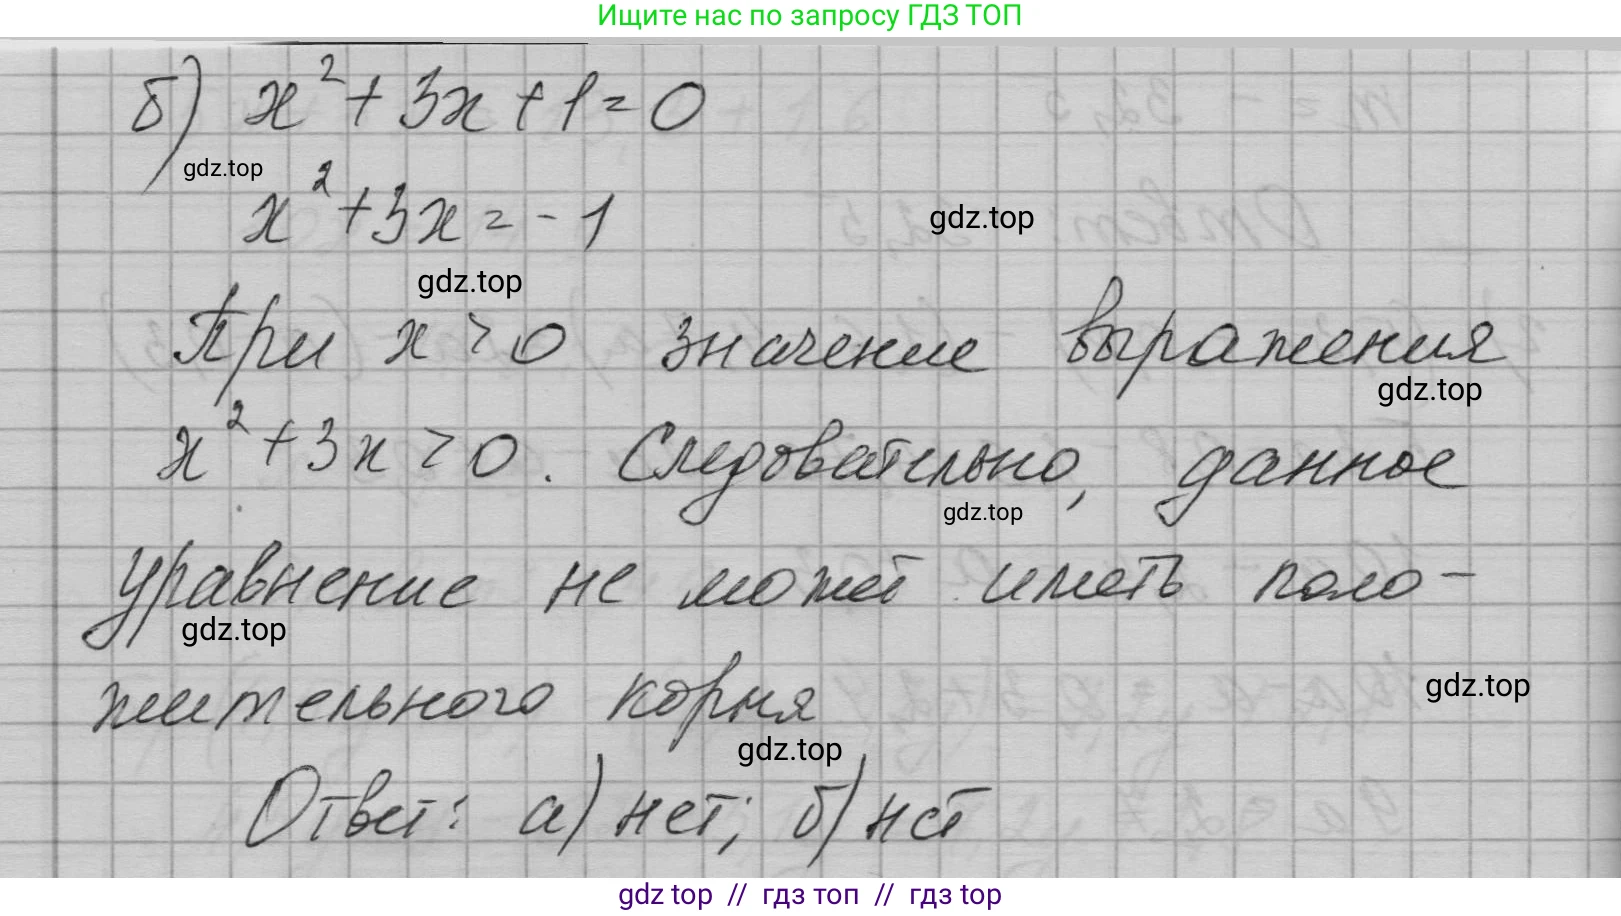 Ищите нас по запросу ГДЗ ТОП
б) x² + 3x + 1 = 0
gdz.top
x² + 3x = - 1
gdz.top
gdz.top
При x > 0 значение выражения
gdz.top
x² + 3x > 0. Следовательно, данное
gdz.top
уравнение не может иметь поло-
gdz.top
жительного корня
gdz.top
gdz.top
Ответ: а) нет; б) нет
gdz top // гдз топ // гдз top